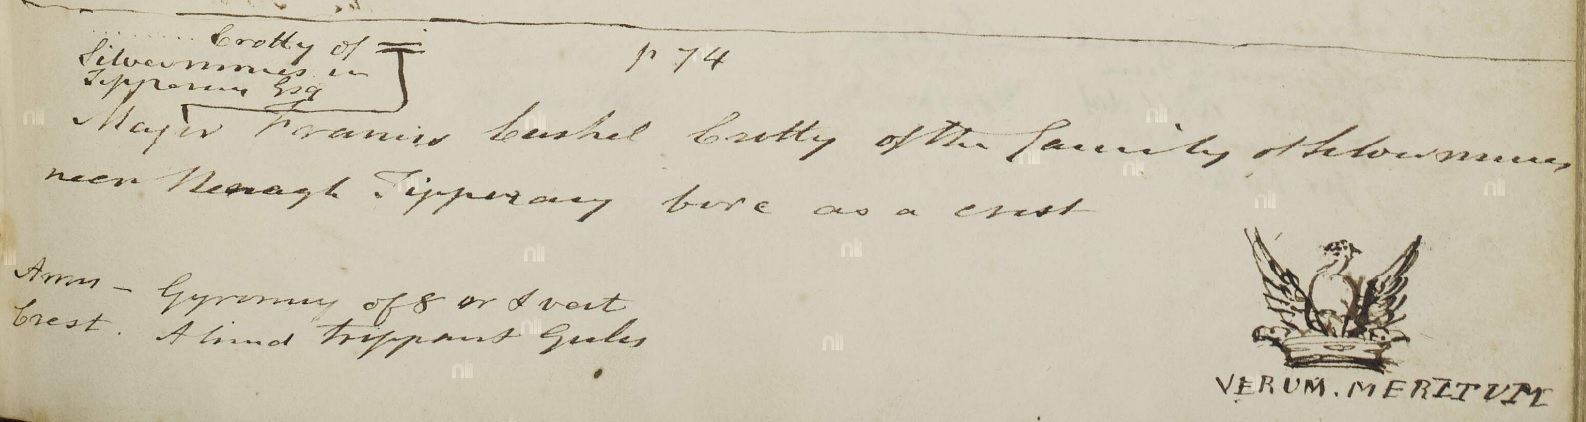 ........ Crotty of =
Silvermines in
Tipperary Esq
p 74
Major Francis Cashel Crotty of the family of Silvermines
near Nenagh Tipperary bore as a crest
Arms - Gyronny of 8 or & vert
Crest. A hind trippant Gules
VERUM. MERITUM